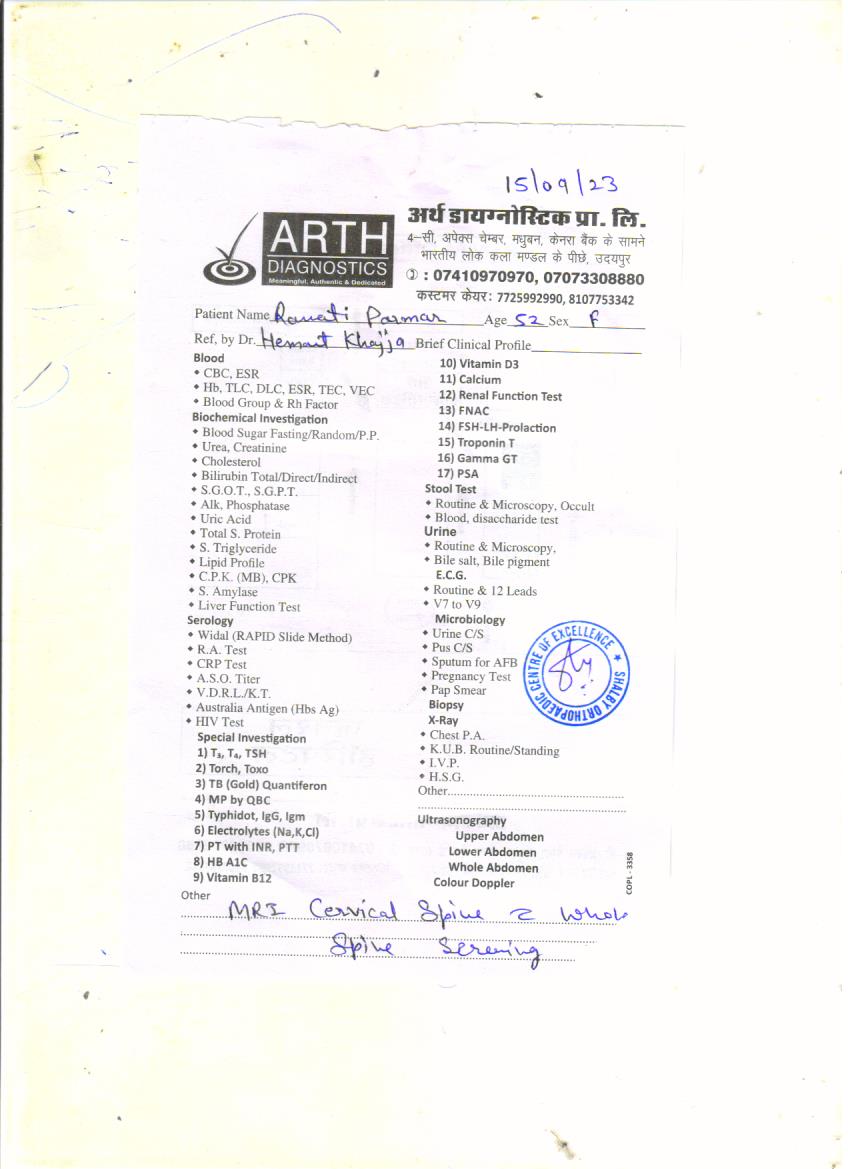 15/09/23
ARTH
DIAGNOSTICS
Meaningful, Authentic & Dedicated
अर्थ डायग्नोस्टिक प्रा. लि.
4-सी, अपेक्स चेम्बर, मधुबन, केनरा बैंक के सामने
भारतीय लोक कला मण्डल के पीछे, उदयपुर
: 07410970970, 07073308880
कस्टमर केयर: 7725992990, 8107753342
Patient Name Parmar Age 52 Sex F
Ref, by Dr. Hemant Brief Clinical Profile
Blood
CBC, ESR
Hb, TLC, DLC, ESR, TEC, VEC
Blood Group & Rh Factor
Biochemical Investigation
Blood Sugar Fasting/Random/P.P.
Urea, Creatinine
Cholesterol
Bilirubin Total/Direct/Indirect
S.G.O.T., S.G.P.T.
Alk, Phosphatase
Uric Acid
Total S. Protein
S. Triglyceride
Lipid Profile
C.P.K. (MB), CPK
S. Amylase
Liver Function Test
Serology
Widal (RAPID Slide Method)
R.A. Test
CRP Test
A.S.O. Titer
V.D.R.L./K.T.
Australia Antigen (Hbs Ag)
HIV Test
Special Investigation
1) T₃, T₄, TSH
2) Torch, Toxo
3) TB (Gold) Quantiferon
4) MP by QBC
5) Typhidot, IgG, Igm
6) Electrolytes (Na,K,Cl)
7) PT with INR, PTT
8) HB A1C
9) Vitamin B12
10) Vitamin D3
11) Calcium
12) Renal Function Test
13) FNAC
14) FSH-LH-Prolaction
15) Troponin T
16) Gamma GT
17) PSA
Stool Test
Routine & Microscopy, Occult
Blood, disaccharide test
Urine
Routine & Microscopy,
Bile salt, Bile pigment
E.C.G.
Routine & 12 Leads
V7 to V9
Microbiology
Urine C/S
Pus C/S
Sputum for AFB
Pregnancy Test
Pap Smear
Biopsy
X-Ray
Chest P.A.
K.U.B. Routine/Standing
I.V.P.
H.S.G.
Other
SHALBY ORTHOPAEDIC CENTRE OF EXCELLENCE
Ultrasonography
Upper Abdomen
Lower Abdomen
Whole Abdomen
Colour Doppler
COPL - 3358
Other
MRI Cervical Spine Whole
Spine Screning